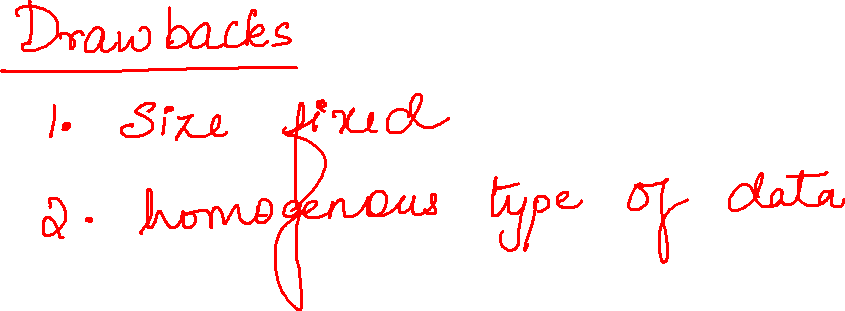 Drawbacks
1. Size fixed
2. homogenous type of data